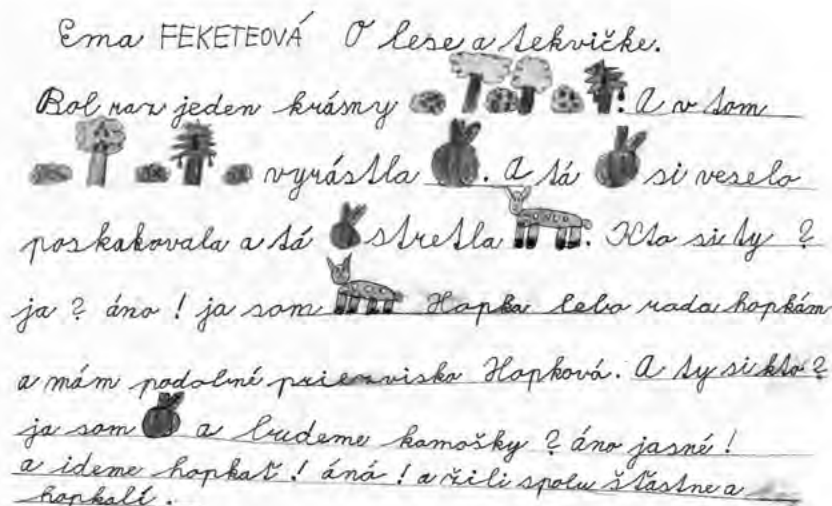 Ema FEKETEOVÁ O lese a tekvičke.
Bol raz jeden krásny . A v tom
vyrástla . A tá si veselo
poskakovala a tá stretla . Kto si ty ?
ja ? áno ! ja som Hopka lebo rada hopkám
a mám podobné priezvisko Hopková. A ty si kto ?
ja som a budeme kamošky ? áno jasné !
a ideme hopkať ! ánó ! a žili spolu šťastne a
hopkalí .